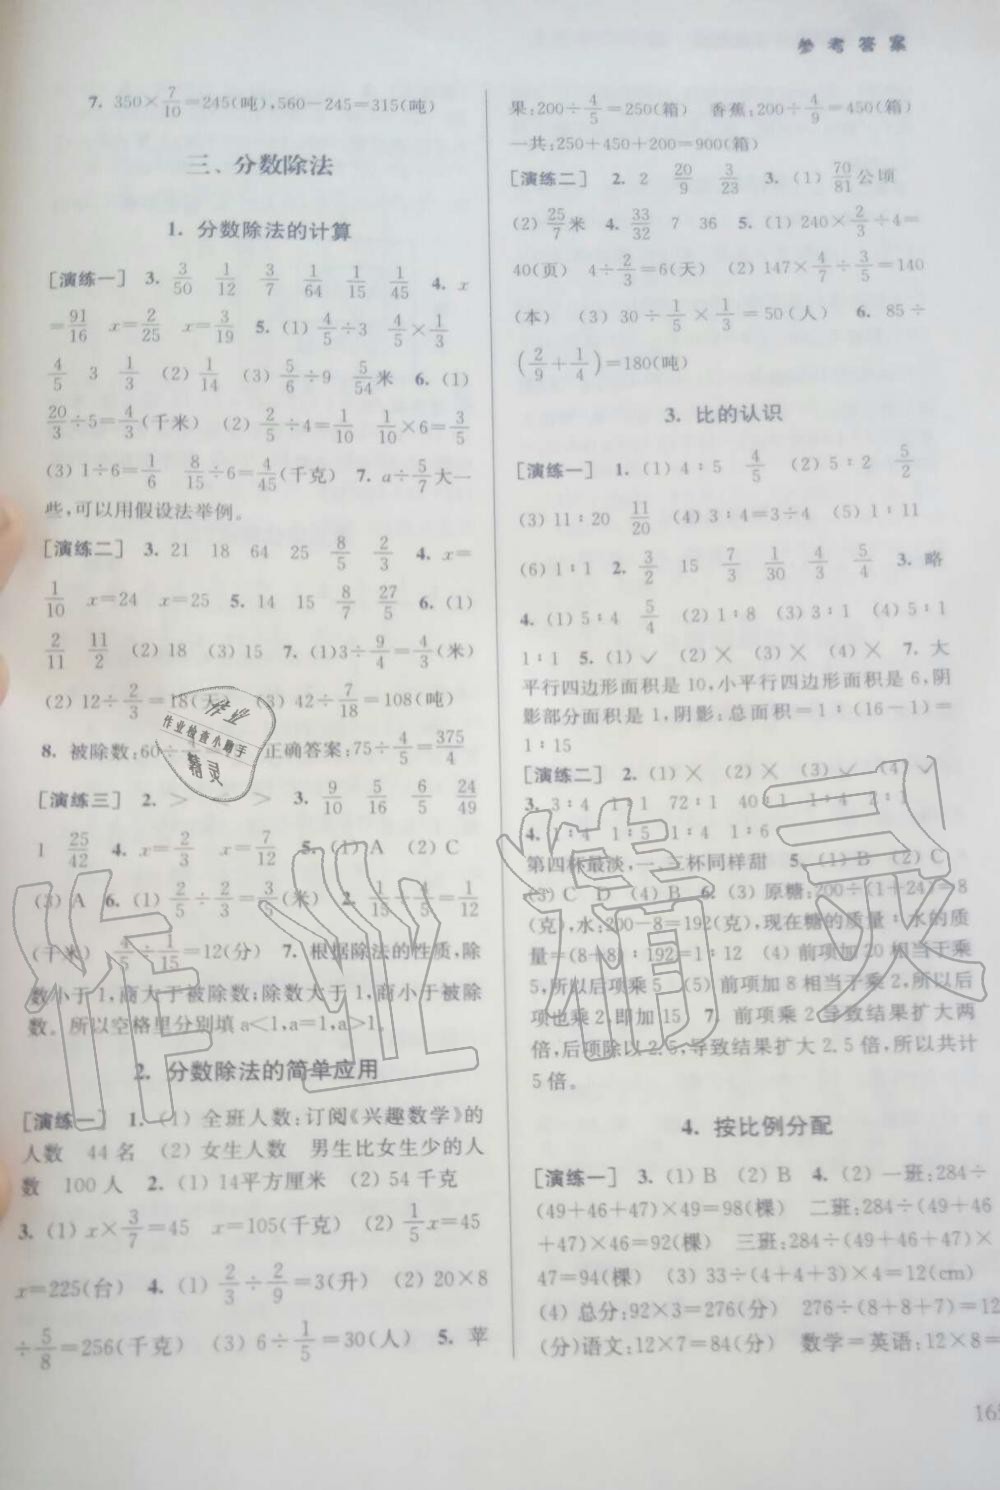 参考答案
7. 350×7/10=245(吨),560-245=315(吨)
三、分数除法
1. 分数除法的计算
[演练一] 3. 3/50 1/12 3/7 1/64 1/15 1/45 4. x
=91/16 x=2/25 x=3/19 5. (1) 4/5÷3 4/5×1/3
4/5 3 1/3 (2) 1/14 (3) 5/6÷9 5/54米 6. (1)
20/3÷5=4/3(千米) (2) 2/5÷4=1/10 1/10×6=3/5
(3) 1÷6=1/6 8/15÷6=4/45(千克) 7. a÷5/7大一
些,可以用假设法举例。
[演练二] 3. 21 18 64 25 8/5 2/3 4. x=
1/10 x=24 x=25 5. 14 15 8/7 27/5 6. (1)
2/11 11/2 (2) 18 (3) 15 7. (1)3÷9/4=4/3(米)
(2) 12÷2/3=18(天) (3) 42÷7/18=108(吨)
8. 被除数:60÷ 正确答案:75÷4/5=375/4
作业
作业检查小助手
精灵
[演练三] 2. > > 3. 9/10 5/16 6/5 24/49
1 25/42 4. x=2/3 x=7/12 5. (1) A (2) C
(3) A 6. (1) 2/5÷2/3=3/5(米) 2. 1/15÷4/5=1/12
(千米) 4/5÷1/15=12(分) 7. 根据除法的性质,除
数小于1,商大于被除数;除数大于1,商小于被除
数。所以空格里分别填a<1,a=1,a>1。
2. 分数除法的简单应用
[演练一] 1. (1) 全班人数:订阅《兴趣数学》的
人数 44名 (2) 女生人数 男生比女生少的人
数 100人 2. (1) 14平方厘米 (2) 54千克
3. (1) x×3/7=45 x=105(千克) (2) 1/5x=45
x=225(台) 4. (1) 2/3÷2/9=3(升) (2) 20×8
÷5/8=256(千克) (3) 6÷1/5=30(人) 5. 苹
果:200÷4/5=250(箱) 香蕉:200÷4/9=450(箱)
一共:250+450+200=900(箱)
[演练二] 2. 2 20/9 3/23 3. (1) 70/81公顷
(2) 25/7米 4. 33/32 7 36 5. (1) 240×2/3÷4=
40(页) 4÷2/3=6(天) (2) 147×4/7÷3/5=140
(本) (3) 30÷1/5×1/3=50(人) 6. 85÷
(2/9+1/4)=180(吨)
3. 比的认识
[演练一] 1. (1) 4∶5 4/5 (2) 5∶2 5/2
(3) 11∶20 11/20 (4) 3∶4=3÷4 (5) 1∶11
(6) 1∶1 2. 3/2 15 7/3 1/30 4/3 5/4 3. 略
4. (1) 5∶4 5/4 (2) 1∶8 (3) 3∶1 (4) 5∶1
1∶1 5. (1) ✓ (2) × (3) × (4) × 7. 大
平行四边形面积是10,小平行四边形面积是6,阴
影部分面积是1,阴影:总面积=1∶(16-1)=
1∶15
[演练二] 2. (1) × (2) × (3) ✓ (4) ✓
3. 3∶4 1∶1 72∶1 40∶1 1∶4 2∶1
4. 1∶4 1∶5 1∶4 1∶6
第四杯最淡,一、三杯同样甜 5. (1) B (2) C
(3) C D (4) B 6. (3) 原糖:200÷(1+24)=8
(克),水:200-8=192(克),现在糖的质量∶水的质
量=(8+8)∶192=1∶12 (4) 前项加20相当于乘
5,所以后项乘5 (5) 前项加8相当于乘2,所以后
项也乘2,即加15 7. 前项乘2导致结果扩大两
倍,后项除以2.5,导致结果扩大2.5倍,所以共计
5倍。
4. 按比例分配
[演练一] 3. (1) B (2) B 4. (2) 一班:284÷
(49+46+47)×49=98(棵) 二班:284÷(49+46
+47)×46=92(棵) 三班:284÷(49+46+47)×
47=94(棵) (3) 33÷(4+4+3)×4=12(cm)
(4) 总分:92×3=276(分) 276÷(8+8+7)=12
(分)语文:12×7=84(分) 数学=英语:12×8=
作业精灵